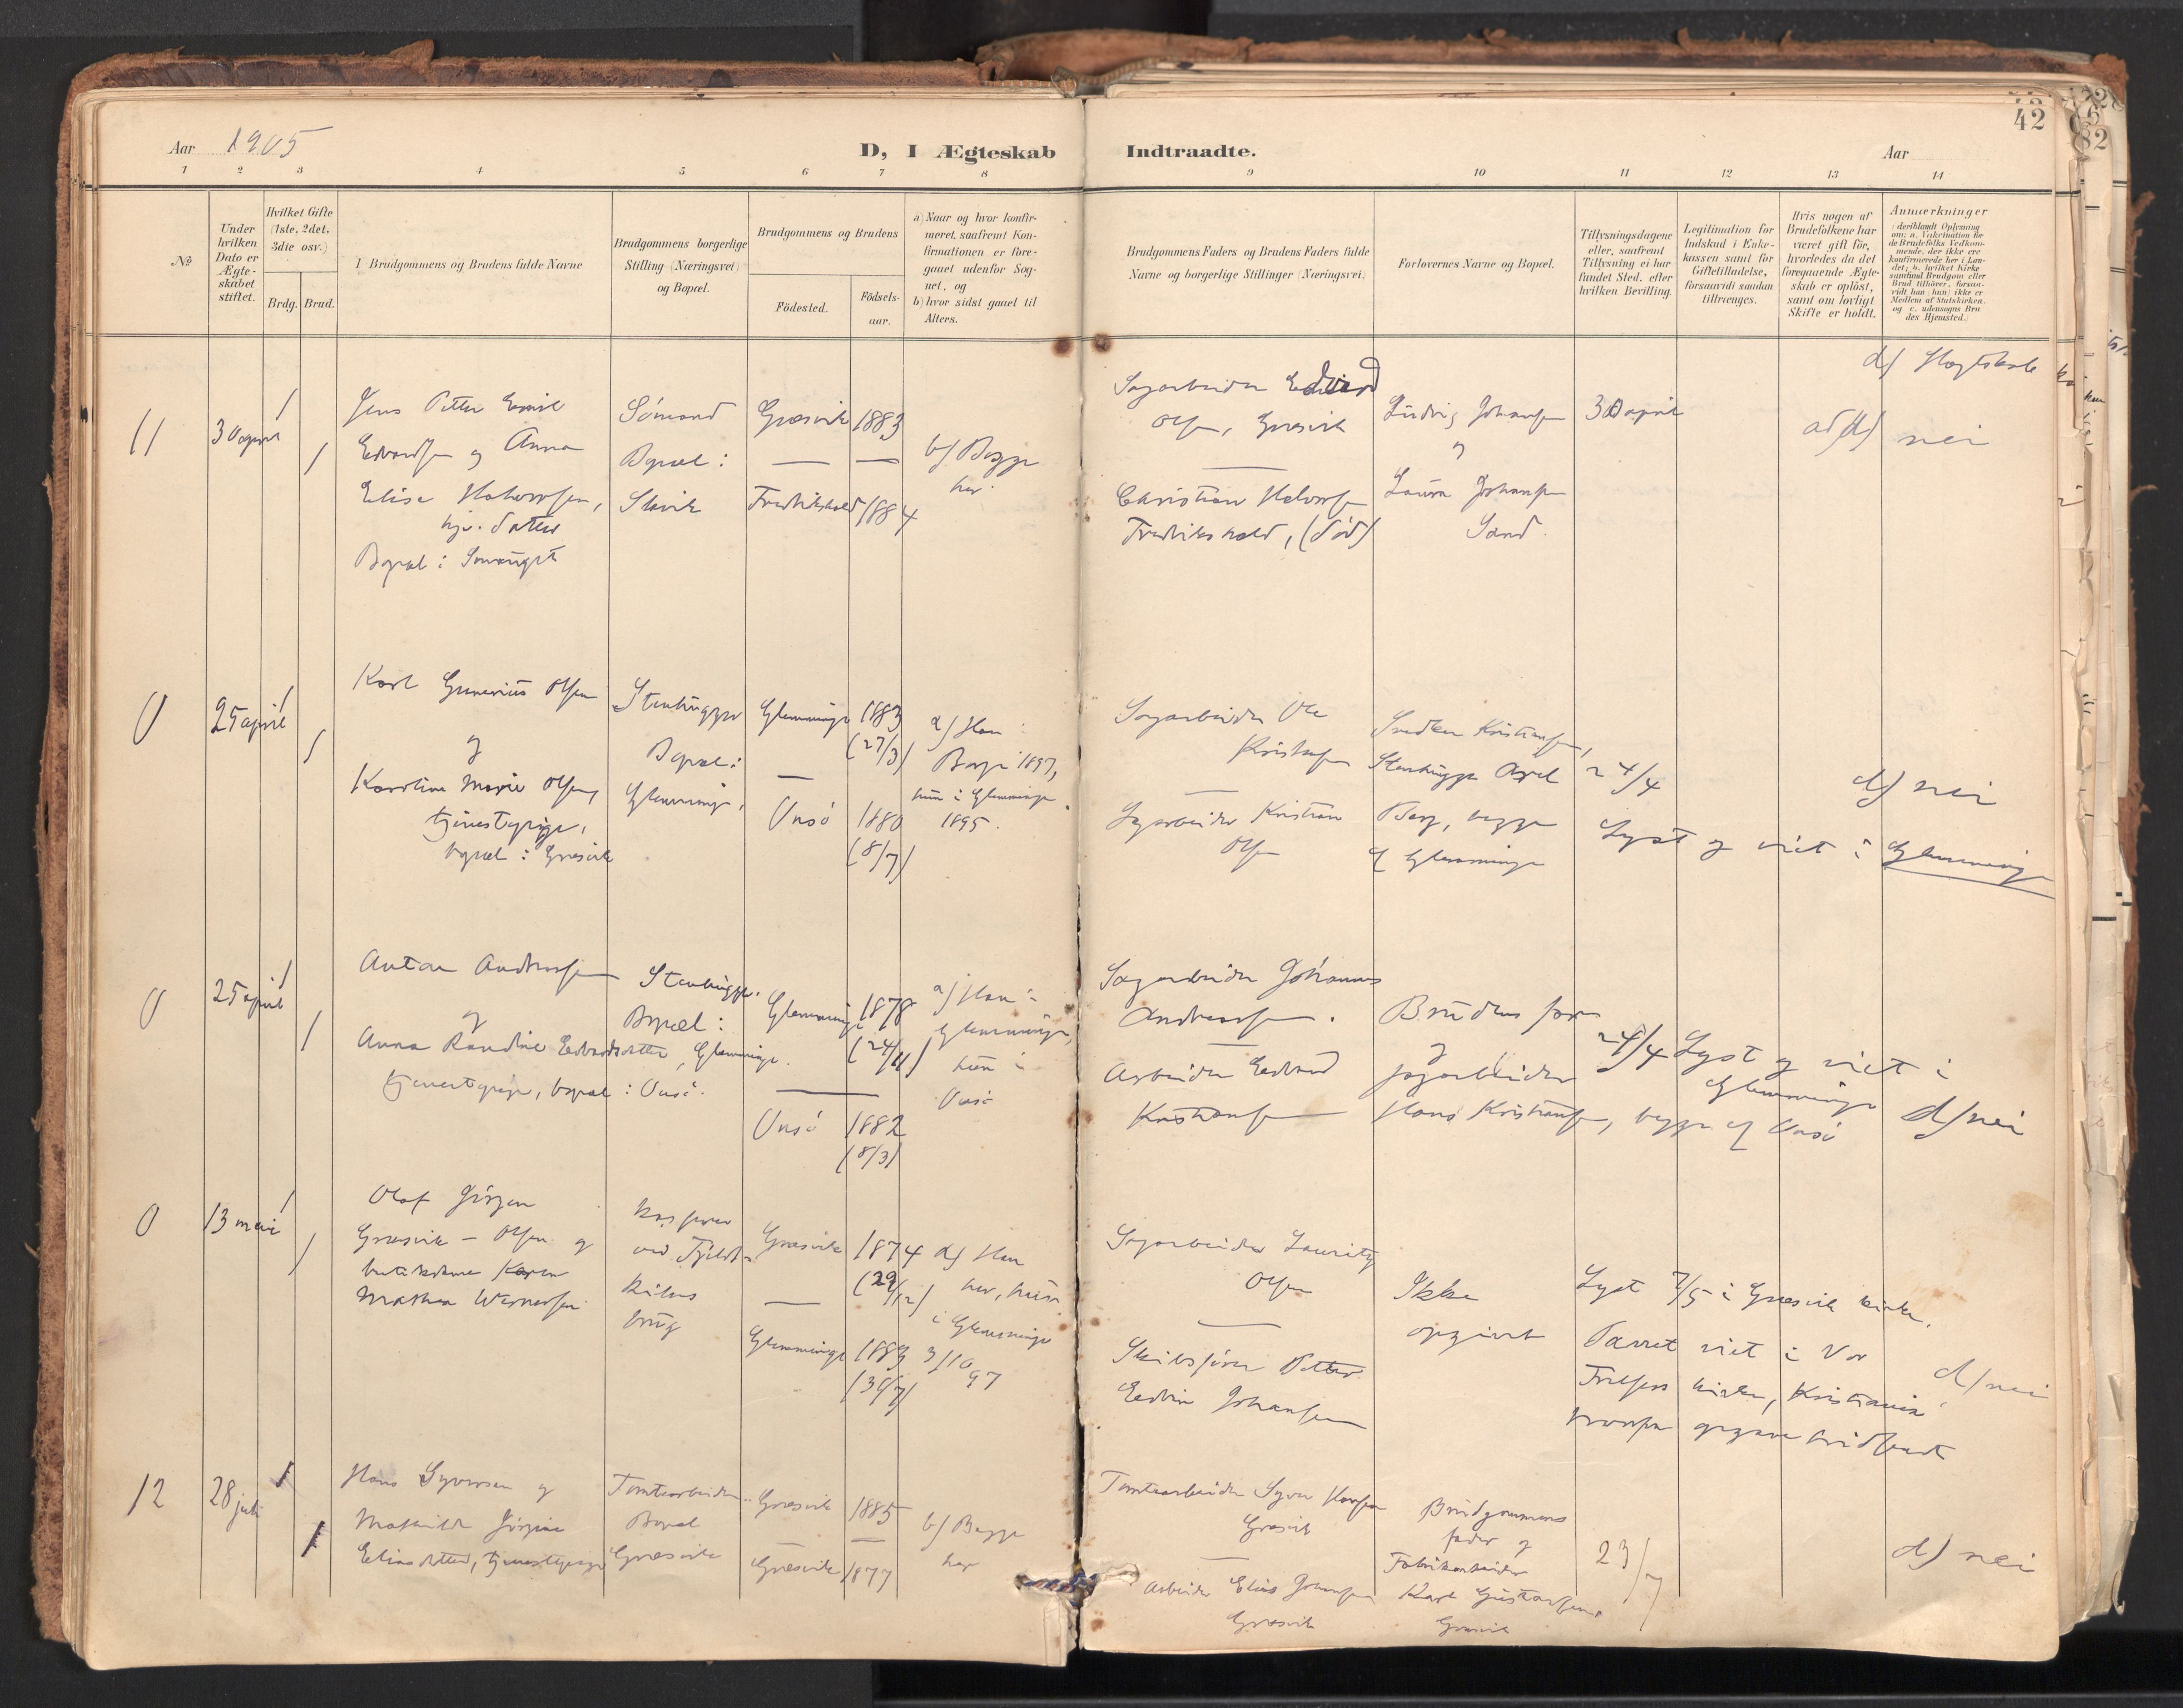 Aar 1905
D, I Ægteskab
1 2 3 4 5 6 7 8
No
Under hvilken Dato er Ægteskabet stiftet.
Hvilket Gifte (1ste, 2det, 3die osv.)
Brdg. Brud.
Brudgommens og Brudens fulde Navne
Brudgommens borgerlige Stilling (Næringsvei) og Bopæl.
Brudgommens og Brudens
Fødested.
Fødselsaar.
a) Naar og hvor konfirmeret, saafremt Konfirmationen er foregaaet udenfor Sognet, og
b) hvor sidst gaaet til Alters.
11 30 april 1 1
Jens Petter Emil
Edvardsen og Anna
Elise Halvorsen,
Bopæl:
Sømand
Bopæl:
Græsvik 1883
— —
Fredrikshald 1884
b/ Begge
her.
0 25 april 1 1
Karl Gunerius Olsen
og
Karoline Marie Olsen,
tjenestepige,
bopæl: Græsvik
Stenhugger
Bopæl:
Glemminge,
Glemminge 1883
(27/3)
—
Onsø 1880
(8/7)
a/ Han i
Borge 1897,
hun i Glemminge
1895.
0 25 april 1 1
Anton Andreassen
og
Anna Randine Edvardsdatter,
tjenestepige, bopæl: Onsø.
Stenhugger.
Bopæl:
Glemminge.
Glemminge 1878
(24/11)
—
Onsø 1882
(8/3)
a/ Han i
Glemminge,
hun i
Onsø
0 13 mai 1 1
Olaf Jörgen
Græsvik - Olsen og
Karen
Mathea Wernersen
brug
Græsvik 1874
(29/12)
—
Glemminge 1883
a/ Han
her, hun
i Glemminge
3/10
97
12 28 juli 1 1
Hans Syversen og
Mathilde Jörgine
Eliasdatter, tjenestepige
Tomtearbeider
Bopæl
Græsvik
Græsvik 1885
—
Græsvik 1877
b/ Begge
her
42
Indtraadte.
Aar
9 10 11 12 13 14
Brudgommens Faders og Brudens Faders fulde Navne og borgerlige Stillinger (Næringsvei).
Forlovernes Navne og Bopæl.
Tillysningsdagene eller, saafremt Tillysning ei har fundet Sted, efter hvilken Bevilling.
Legitimation for Indskud i Enkekassen samt for Giftetilladelse, forsaavidt saadan tiltrænges.
Hvis nogen af Brudefolkene har været gift før, hvorledes da det foregaaende Ægteskab er opløst, samt om lovligt Skifte er holdt.
Anmærkninger (deriblandt Oplysning om: a. Vakcination for de Brudefolks Vedkommende, der ikke ere konfirmerede her i Landet; b. hvilket Kirkesamfund Brudgom eller Brud tilhører, forsaavidt han (hun) ikke er Medlem af Statskirken, og c. udensogns Brudes Hjemsted.)
Sagarbeider Edvard
Olsen, Græsvik
—
Christian Halvorsen
Fredrikshald, (død)
Ludvig Johansen
og
Laura Johansen
Sand.
30 april
nei
Sagarbeider Ole
Kristofersen
—
Sagarbeider Kristian
Olsen
Kristiansen,
Stenhugger Axel
Berg, begge
af Glemminge
24/4
Lyst og viet i Glemminge
d/ nei
Sagarbeider Johannes
Andreassen.
—
Arbeider Edvard
Kristiansen
Brudens far
og
sagarbeider
Hans Kristiansen, begge af Onsø
24/4 Lyst og viet i
Glemminge
d/ nei
Sagarbeider Lauritz
Olsen
—
Skibsfører Petter
Edvin Johansen
Ikke
opgivet
Lyst 7/5 i Græsvik kirke.
Parret viet i Vor
Frelsers kirke, Kristiania
d/ nei
Tomtearbeider Syver Hansen
Græsvik
—
Arbeider Elias Johansen
Græsvik
Brudgommens
fader og
Fabrikarbeider
Karl Gustavsen,
Græsvik
23/7
d/ nei